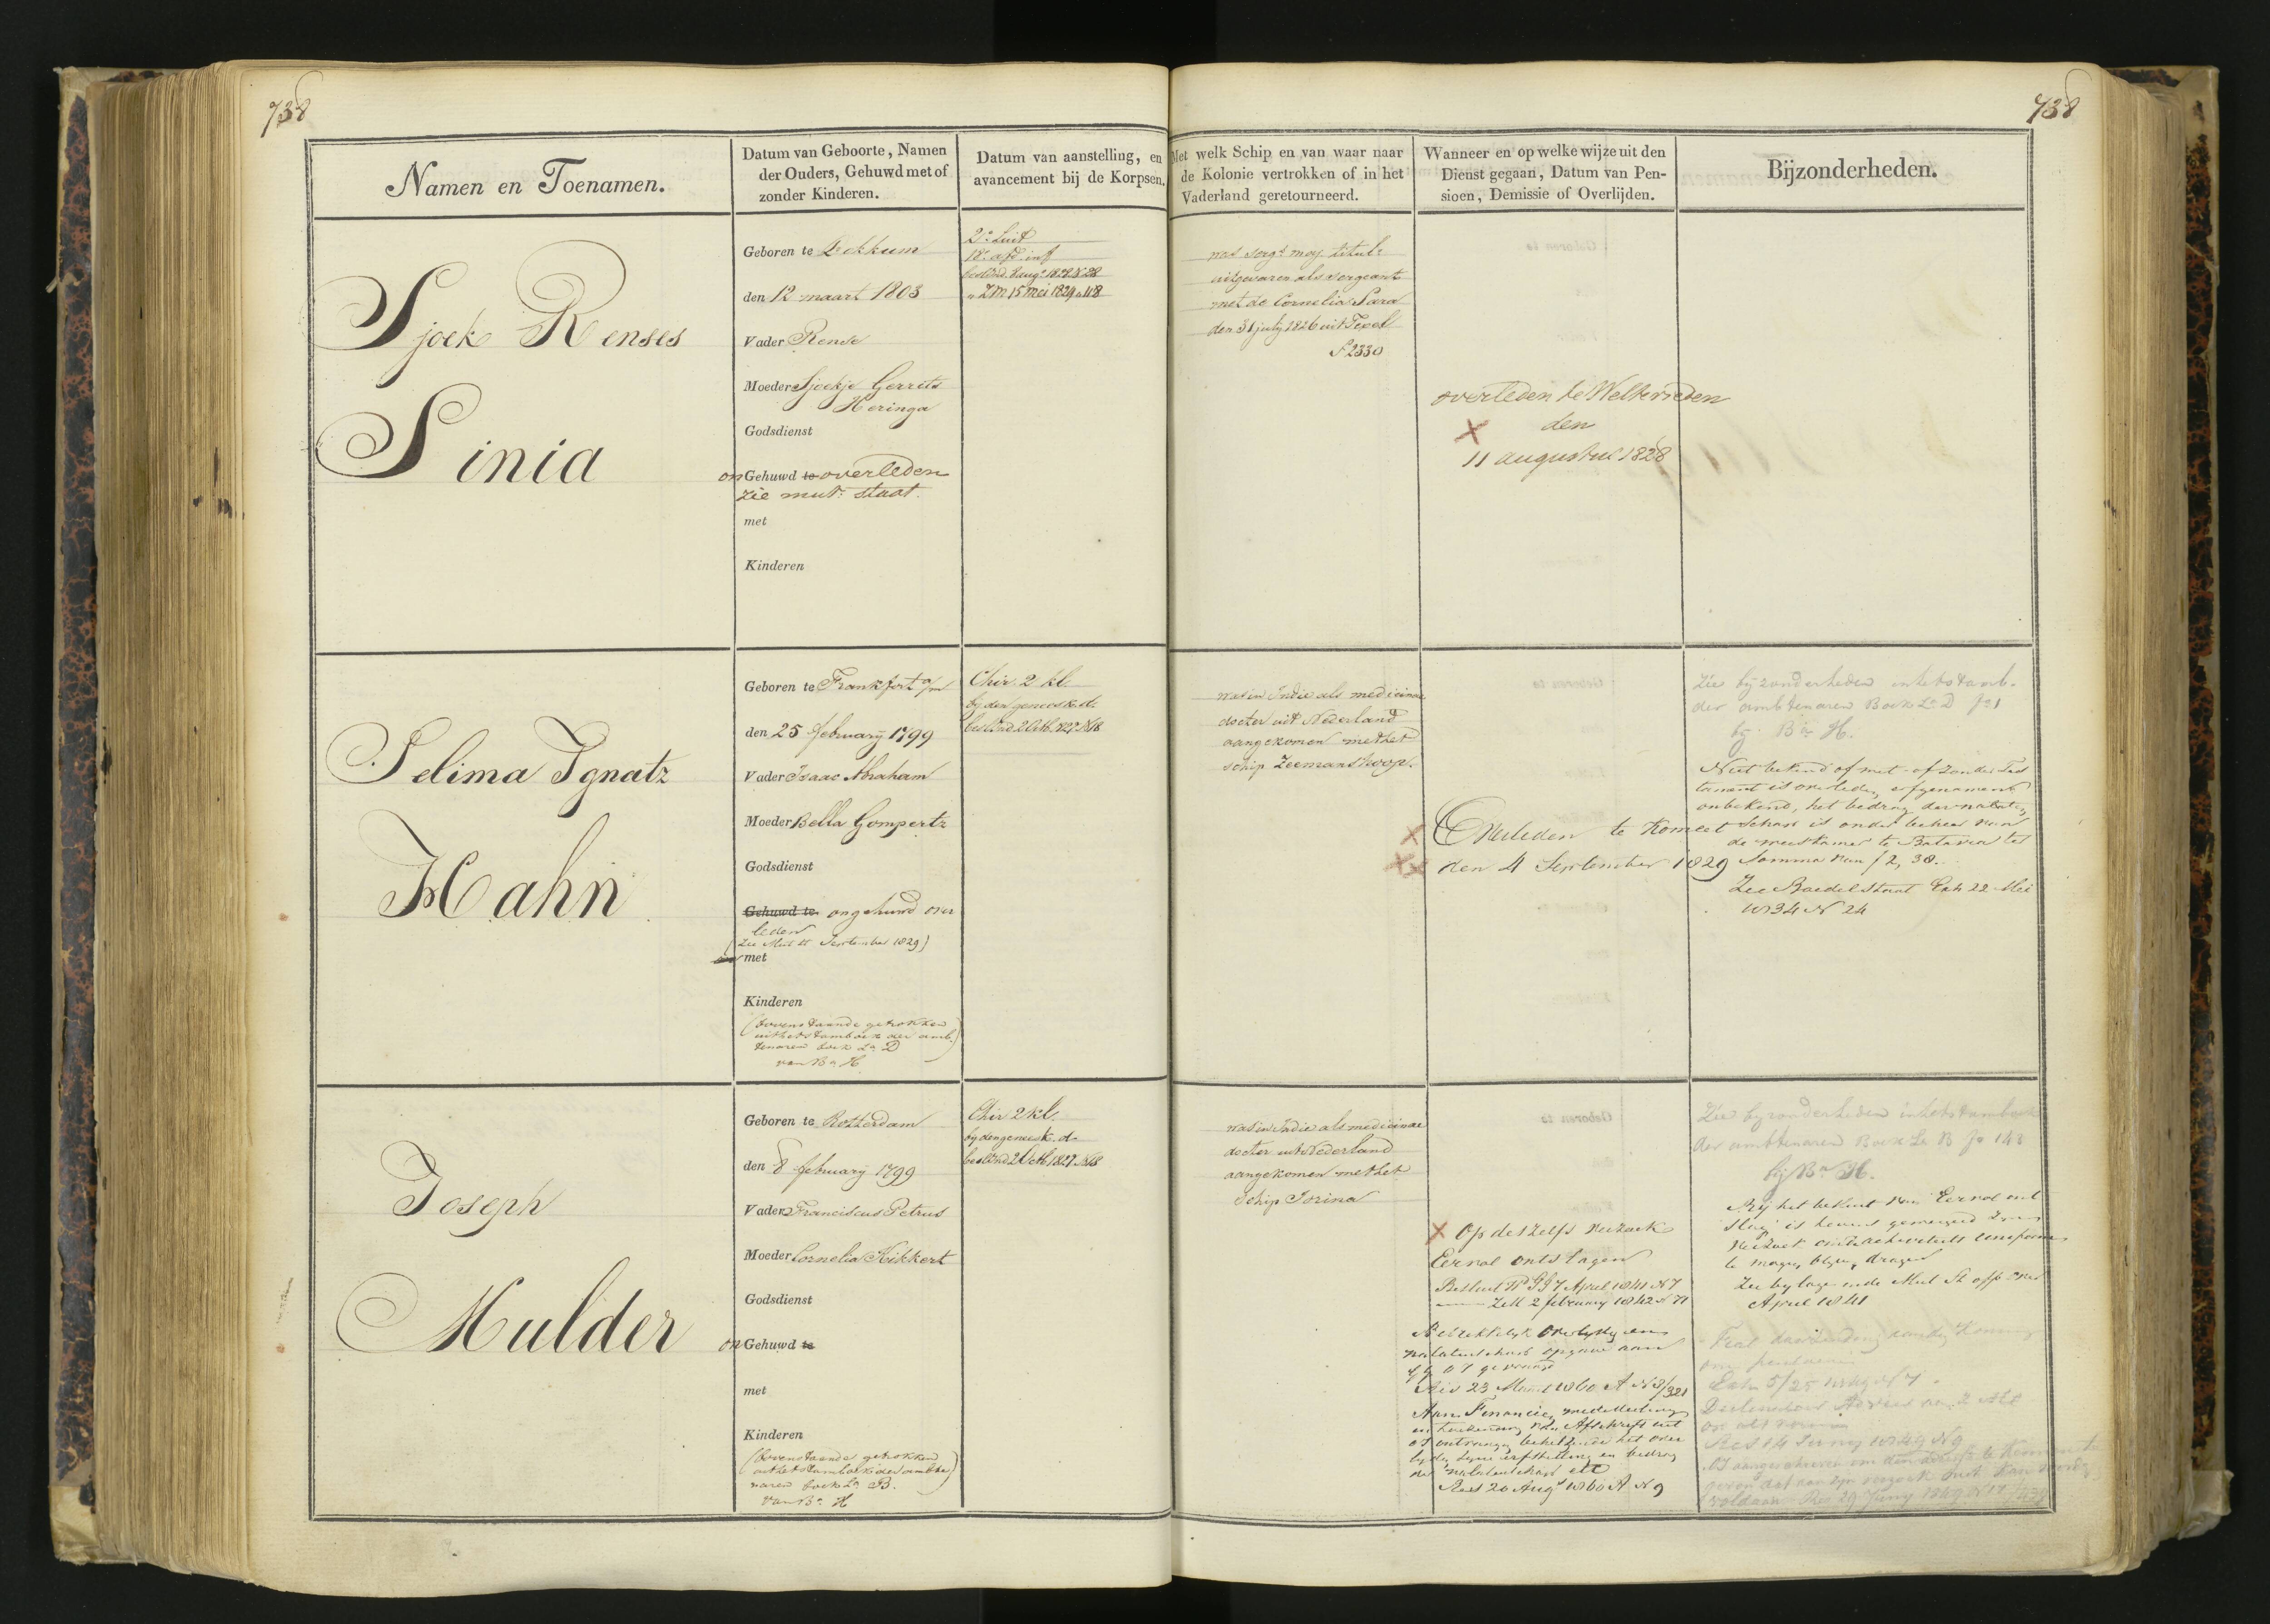 738
738
Namen en Toenamen.
Datum van Geboorte, Namen
der Ouders, Gehuwd met of
zonder Kinderen.
Datum van aanstelling, en
avancement bij de Korpsen.
Met welk Schip en van waar naar
de Kolonie vertrokken of in het
Vaderland geretourneerd.
Wanneer en op welke wijze uit den
Dienst gegaan, Datum van Pen-
sioen, Demissie of Overlijden.
Bijzonderheden.
Sjoek Renses
Sinia
Geboren te Lekkum
den 12 maart 1803
Vader Rense
Moeder Sjoekje Gerrits
Heringa
Godsdienst
on Gehuwd te overleden
zie mut: staat.
met
Kinderen
2e Luit
18e afd. inf
besl Ind. 8 augs 1828 N 28
" ZM 15 mei 1829 " 118
was sergt maj titul:
uitgevaren als sergeant
met de Cornelia Sara
den 31 july 1826 uit Texel
F 2330
overleden te Weltevreden
den
11 augustus 1828
Selima Ignatz
Hahn
Geboren te Frankfort a/m
den 25 february 1799
Vader Isaac Abraham
Moeder Bella Gompertz
Godsdienst
Gehuwd te ongehuwd over
leden
(Zie Mut st September 1829)
met
Kinderen
(bovenstaande getrokken
uit het stamboek der amb-)
tenaren boek La D
van Bu H
Chir 2 kl.
by den geneesk. d.
besl Ind 2 Octb. 1827 N 18
was in Indie als medicinae
docter uit Nederland
aangekomen met het
schip Zeemanshoop.
Overleden te Komeet
den 4 September 1829
Zie byzonderheden in het stamb.
der ambtenaren Boek La D fo 1
by Bu H.
Niet bekend of met of zonder Tes
tament is overleden, erfgenamen
onbekend, het bedrag der nalaten
schap is onder beheer van
de weeskamer te Batavia ter
Somma van f 2,38.
Zie Boedelstaat Exh 22 Mei
1834 N 24
Joseph
Mulder
Geboren te Rotterdam
den 8 february 1799
Vader Franciscus Petrus
Moeder Cornelia Kikkert
Godsdienst
on Gehuwd te
met
Kinderen
(bovenstaande getrokken
uit het stamboek der ambte)
naren boek La B.
van Bu H
Chir 2 kl.
by den geneesk. d.
besl Ind 2 Octb 1827 N 18
was in Indie als medicinae
docter uit Nederland
aangekomen met het
schip Corina
Op deszelfs verzoek
Eervol ontslagen
Besluit 7 April 1841 N 7
ZM 2 february 1842 N 71
Betrekkelyk overlyden en
nalatenschap opgave aan
gevraagd
23 Maart 1860 A N 3/321
Aan Financien mededeeling
en toezending van Afschrift uit
OI ontvangen behelzende het over
lyden, erfstelling en bedrag
der nalatenschap
Res 20 Augs 1860 A N 9
Zie byzonderheden in het stamboek
der ambtenaren Boek La B fo 148
by Bu H.
By het besluit van Eervol ont
slag is tevens gewezen op zyn
verzoek om de activiteits uniform
te mogen blyven dragen
Zie bylage in de Mut St off over
April 1841
N 7.
Res 14 Juny 1849 N 9
Res 29 Juny 1849 N 17